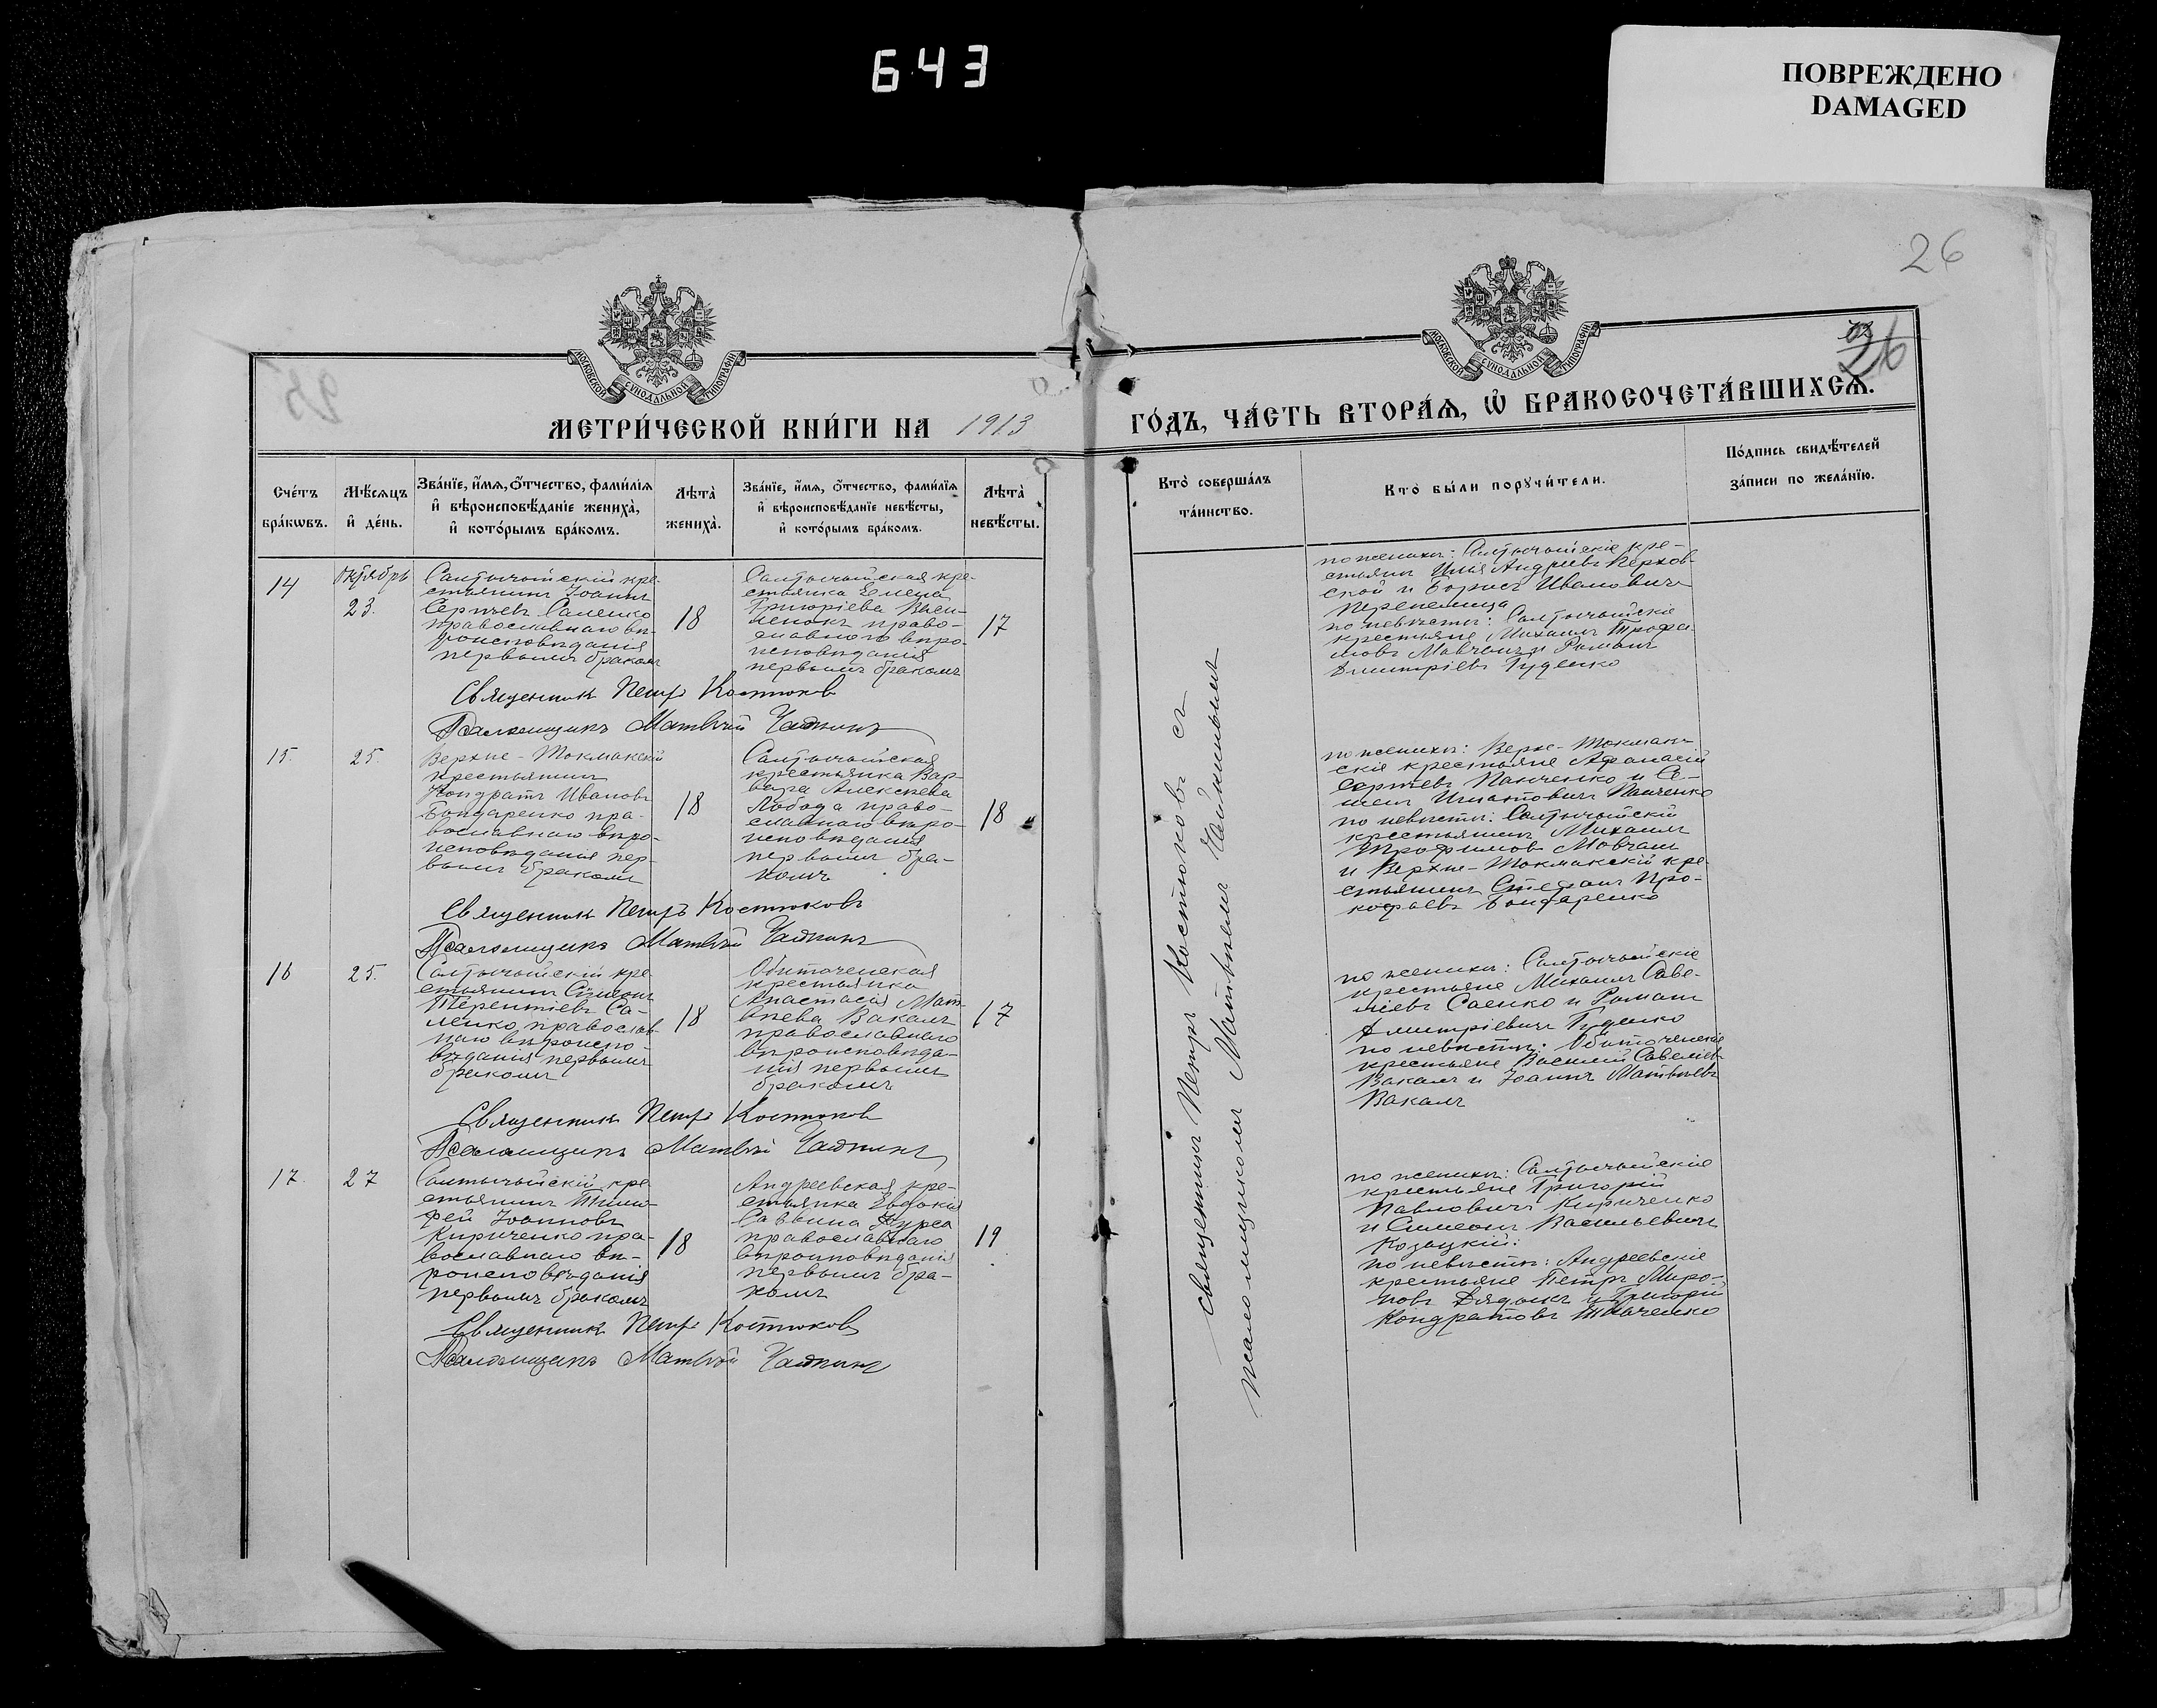 643
ПОВРЕЖДЕНО
DAMAGED
26
26
МОСКОВСКОЙ СѴНОДАЛЬНОЙ ТИПОГРАФІИ
МОСКОВСКОЙ СѴНОДАЛЬНОЙ ТИПОГРАФІИ
МЕТРИ́ЧЕСКОЙ КНИ́ГИ НА 1913
ГО́ДЪ, ЧА́СТЬ ВТОРА́Ѧ, Ѿ БРАКОСОЧЕТА́ВШИХСѦ.
Сче́тъ
бра́кѡвъ.
Мѣ́сѧцъ
и҆ де́нь.
Зва́нїе, и҆́мѧ, ѻ҆́тчество, фами́лїѧ
и҆ вѣроисповѣ́данїе жениха̀,
и҆ кото́рымъ бра́комъ.
Лѣта̀
жениха̀.
Зва́нїе, и҆́мѧ, ѻ҆́тчество, фами́лїѧ
и҆ вѣроисповѣ́данїе невѣ́сты,
и҆ кото́рымъ бра́комъ.
Лѣта̀
невѣ́сты.
Кто̀ соверша́лъ
та́инство.
Кто̀ бы́ли порꙋчи́тели.
По́дпись свидѣ́телей
за́писи по жела́нїю.
14
Октябрь
23.
Салтычійскій кре-
стьянинъ Іоаннъ
Сергѣевъ Саленко
православнаго вѣ-
роисповѣданія
первымъ бракомъ
18
Салтычійская кре-
стьянка Елена
Григоріева
право-
славного вѣро-
исповѣданія
первымъ бракомъ
17
по женихѣ: Салтычійскіе кре-
стьяне Илія Андреевъ Верхов-
ской и Борисъ Ивановичъ
Перепелица
по невѣстѣ: Салтычійскіе
крестьяне Михаилъ Трофи-
мовъ Мовчанъ и Романъ
Димитріевъ Гуденко
Священникъ Петръ Костюковъ
Псаломщикъ Матвѣй
15.
25.
Верхне-Токмакскій
крестьянинъ
Кондратъ Ивановъ
Бондаренко пра-
вославнаго вѣро-
исповѣданія пер-
вымъ бракомъ
18
Салтычійская
крестьянка Вар-
вара Алексѣева
Лобода право-
славнаго вѣро-
исповѣданія
первымъ бра-
комъ
18
по женихѣ: Верхне-Токмак-
скіе крестьяне Афанасій
Сергѣевъ Панченко и Се-
менъ Игнатовичъ Панченко
по невѣстѣ: Салтычійскій
крестьянинъ Михаилъ
Трофимовъ Мовчанъ
и Верхне-Токмакскій кре-
стьянинъ Стефанъ Про-
кофьевъ Бондаренко
Священникъ Петръ Костюковъ
Псаломщикъ Матвѣй
16
25.
Салтычійскій кре-
стьянинъ Сѵмеонъ
Терентіевъ Са-
ленко, православ-
наго вѣроиспо-
вѣданія первымъ
бракомъ
18
Обиточенская
крестьянка
Анастасія Мат-
вѣева Вакалъ
православнаго
вѣроисповѣда-
нія первымъ
бракомъ
17
по женихѣ: Салтычійскіе
крестьяне Михаилъ Саве-
ліевъ Саенко и Романъ
Димитріевичъ Гуденко
по невѣстѣ: Обиточенскіе
крестьяне Василій Савеліевъ
Вакалъ и Іоаннъ Матвѣевъ
Вакалъ
Священникъ Петръ Костюковъ
Псаломщикъ Матвѣй
17.
27
Салтычійскій кре-
стьянинъ Тимо-
фей Іоанновъ
Кириченко пра-
вославнаго вѣ-
роисповѣданія
первымъ бракомъ
18
Андреевская кре-
стьянка Евдокія
Саввина
православнаго
вѣроисповѣданія
первымъ бра-
комъ
19
по женихѣ: Салтычійскіе
крестьяне Григорій
Павловичъ Кириченко
и Симеонъ Васильевичъ
Козацкій:
по невѣстѣ: Андреевскіе
крестьяне Петръ Миро-
новъ Дядыкъ и Григорій
Кондратовъ Ткаченко
Священникъ Петръ Костюковъ
Псаломщикъ Матвѣй
Священникъ Петръ Костюковъ съ
псаломщикомъ Матвѣемъ